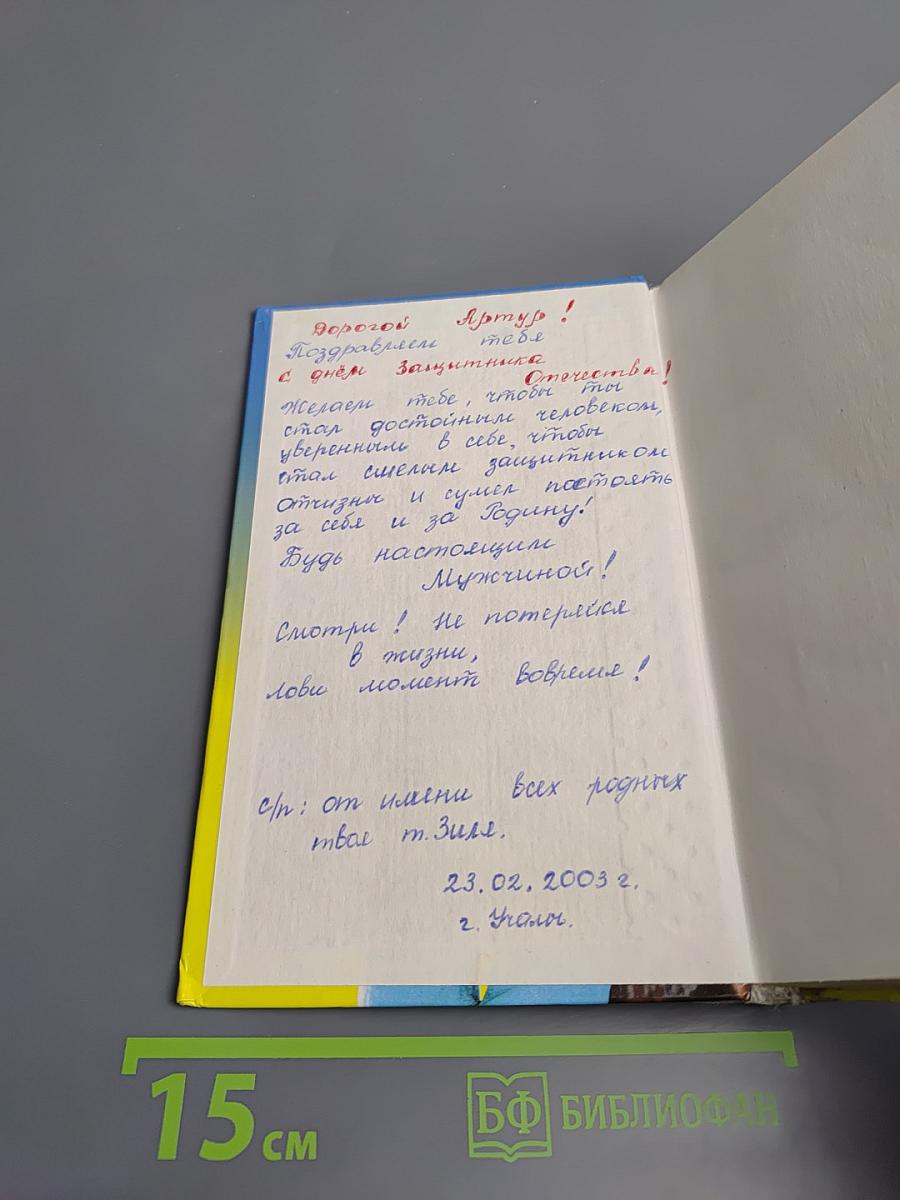 Дорогой Артур!
Поздравляем тебя
с днём Защитника
Отечества!
Желаем тебе, чтобы ты
стал достойным человеком,
уверенным в себе, чтобы
стал смелым защитником
отчизны и сумел постоять
за себя и за Родину!
Будь настоящим
Мужчиной!
Смотри! Не потеряйся
в жизни,
лови момент вовремя!
с/п: от имени всех родных
твоя т. Зиля.
23.02.2003 г.
г. Учалы.
15 см
БФ БИБЛИОФАН